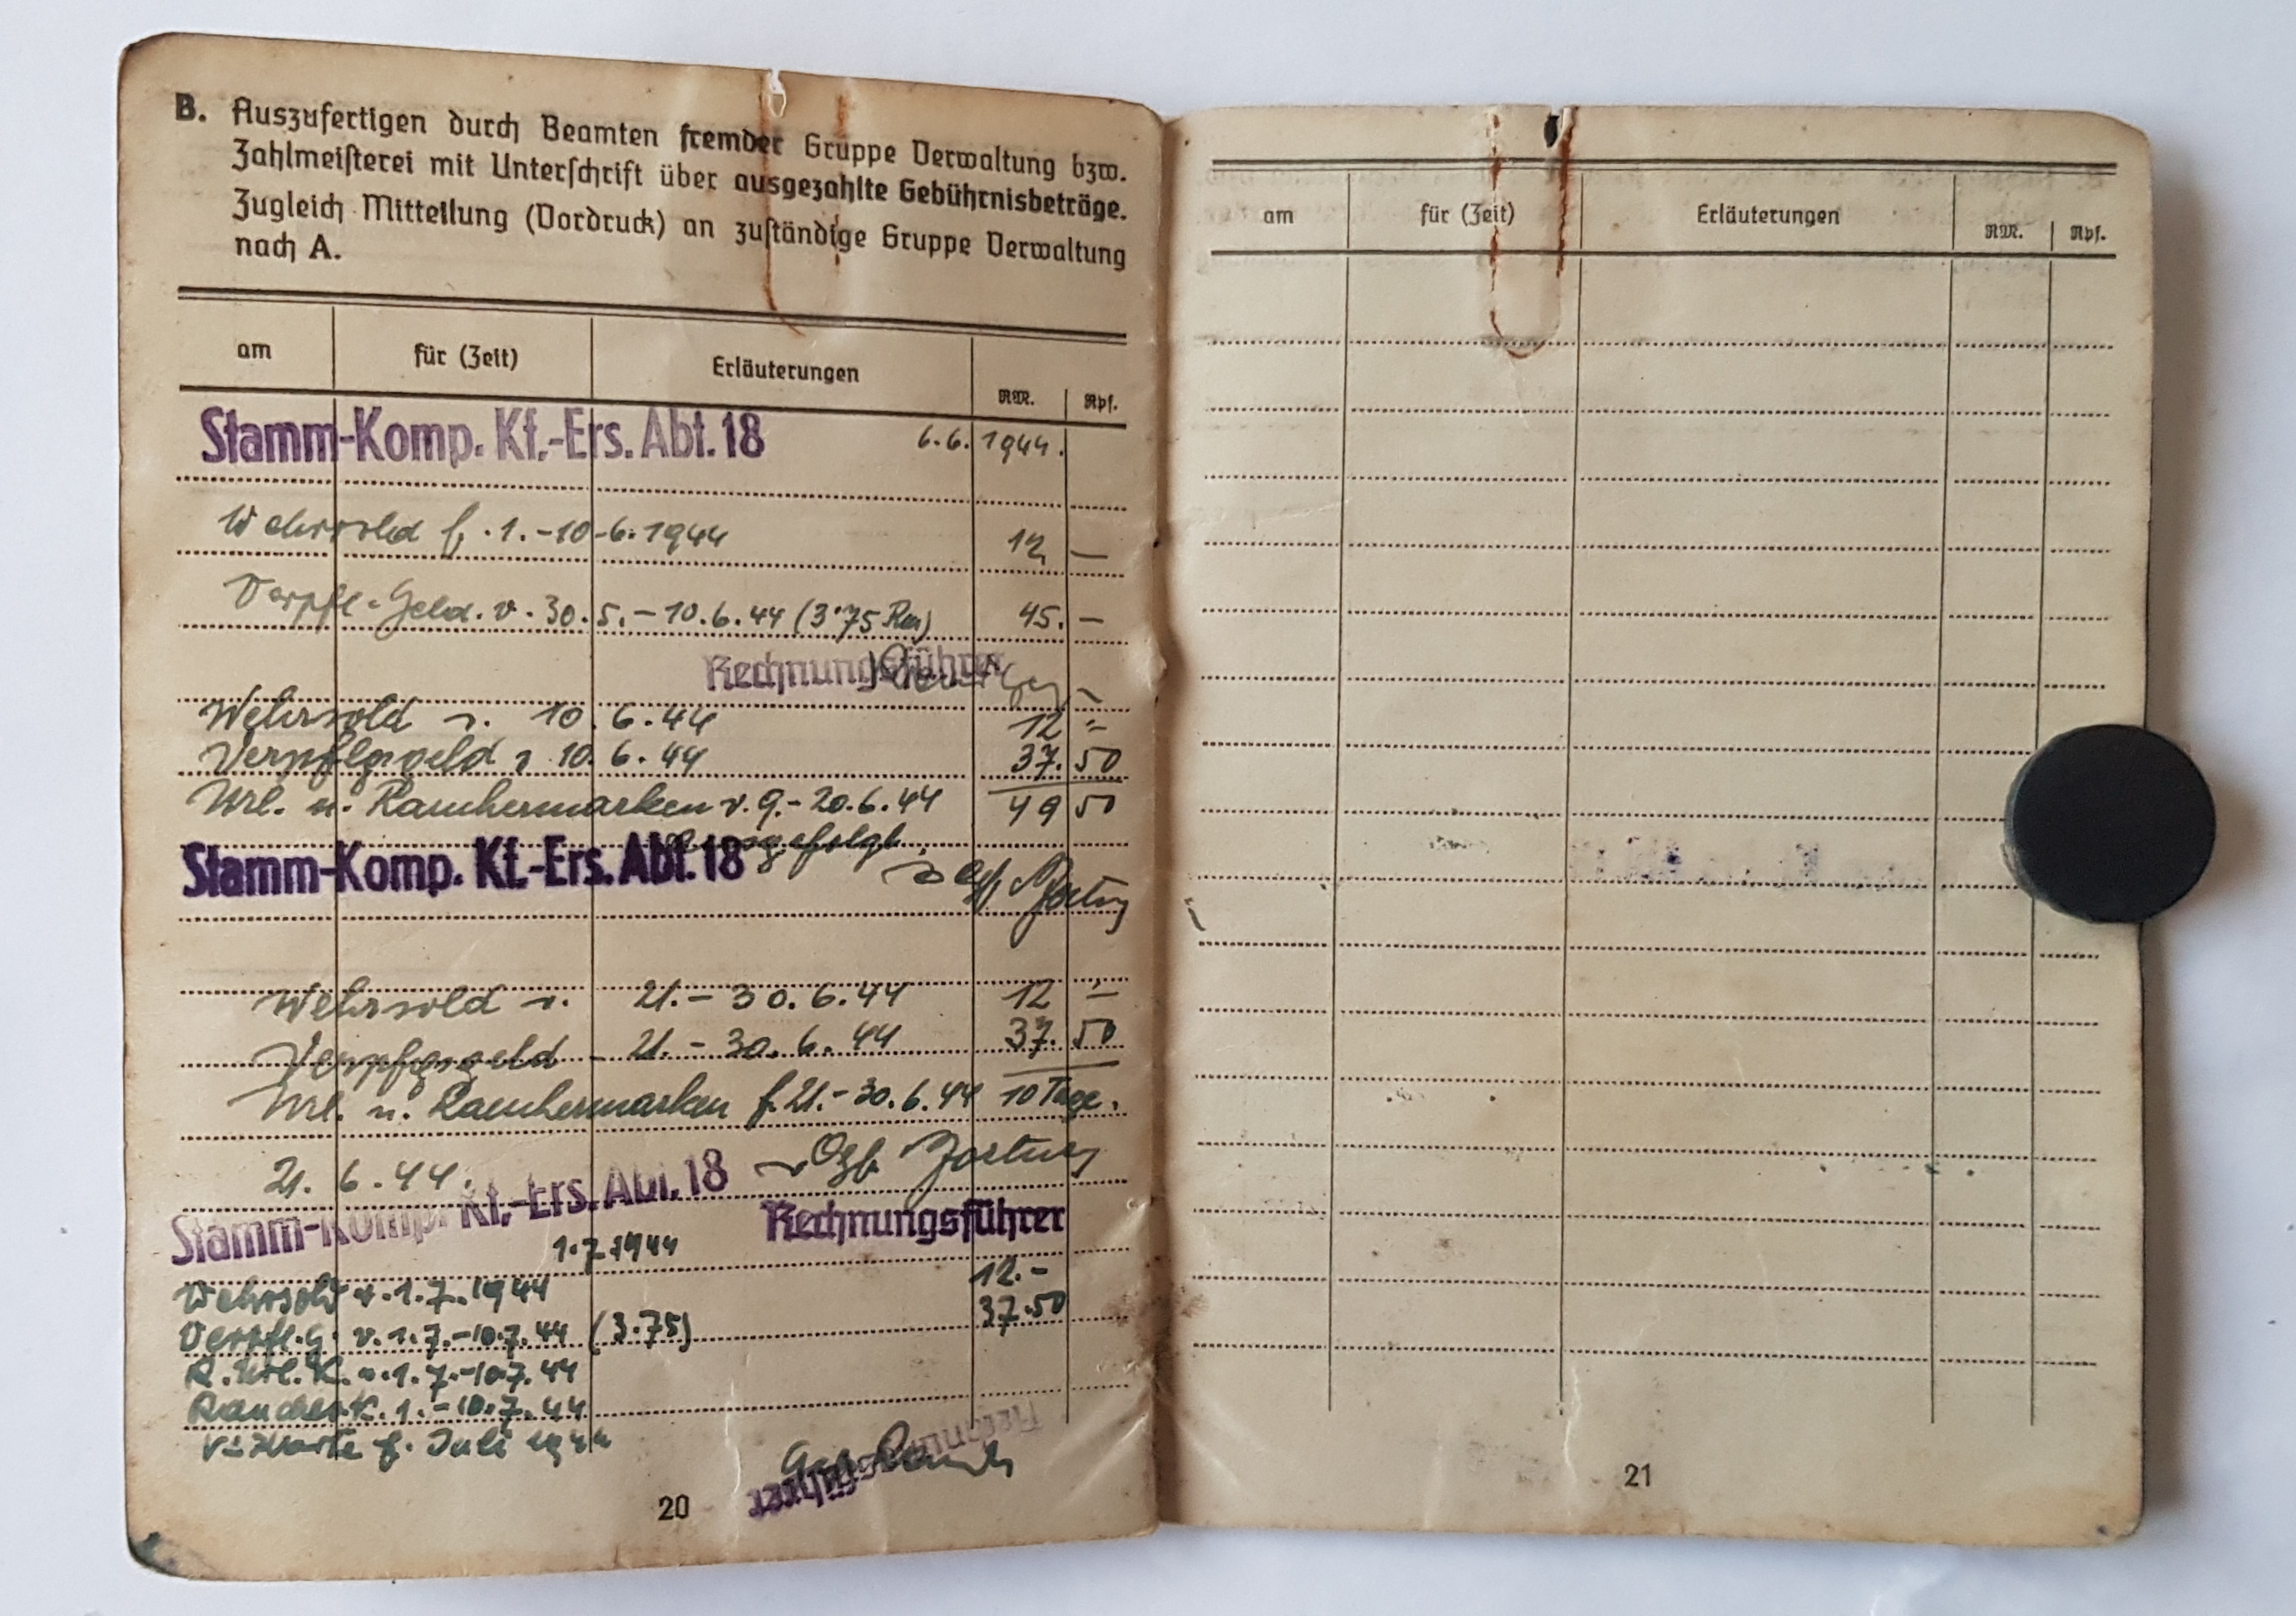 B. Auszufertigen durch Beamten fremder Gruppe Verwaltung bzw.
Zahlmeisterei mit Unterschrift über ausgezahlte Gebührnisbeträge.
Zugleich Mitteilung (Vordruck) an zuständige Gruppe Verwaltung
nach A.
am für (Zeit) Erläuterungen RM. Rpf.
Stamm-Komp. Kf.-Ers. Abt. 18 6.6.1944.
Wehrsold f. 1.-10.6.1944 12 —
Verpfl.-Geld. v. 30.5.-10.6.44 (3.75 Rm) 45. —
Rechnungsführer
Wehrsold v. 10.6.44 12 -
Verpflgsgeld v 10.6.44 37.50
Url. u. Rauchermarken v. 9.-20.6.44 49 50
Stamm-Komp. Kf.-Ers. Abt. 18
Wehrsold v. 21.-30.6.44 12 -
Verpflgsgeld - 21.-30.6.44 37.50
Url. u. Rauchermarken f. 21.-30.6.44 10 Tage.
21.6.44.
Stamm-Komp. Kf.-Ers. Abt. 18
Rechnungsführer
1.7.1944
Wehrsold v. 1.7.1944 12.-
Verpfl.G. v. 1.7.-10.7.44 (3.75) 37.50
R.Url.K. v. 1.7.-10.7.44
Raucherk. 1.-10.7.44
f. Juli 1944
Rechnungsführer
20
am für (Zeit) Erläuterungen RM. Rpf.
21